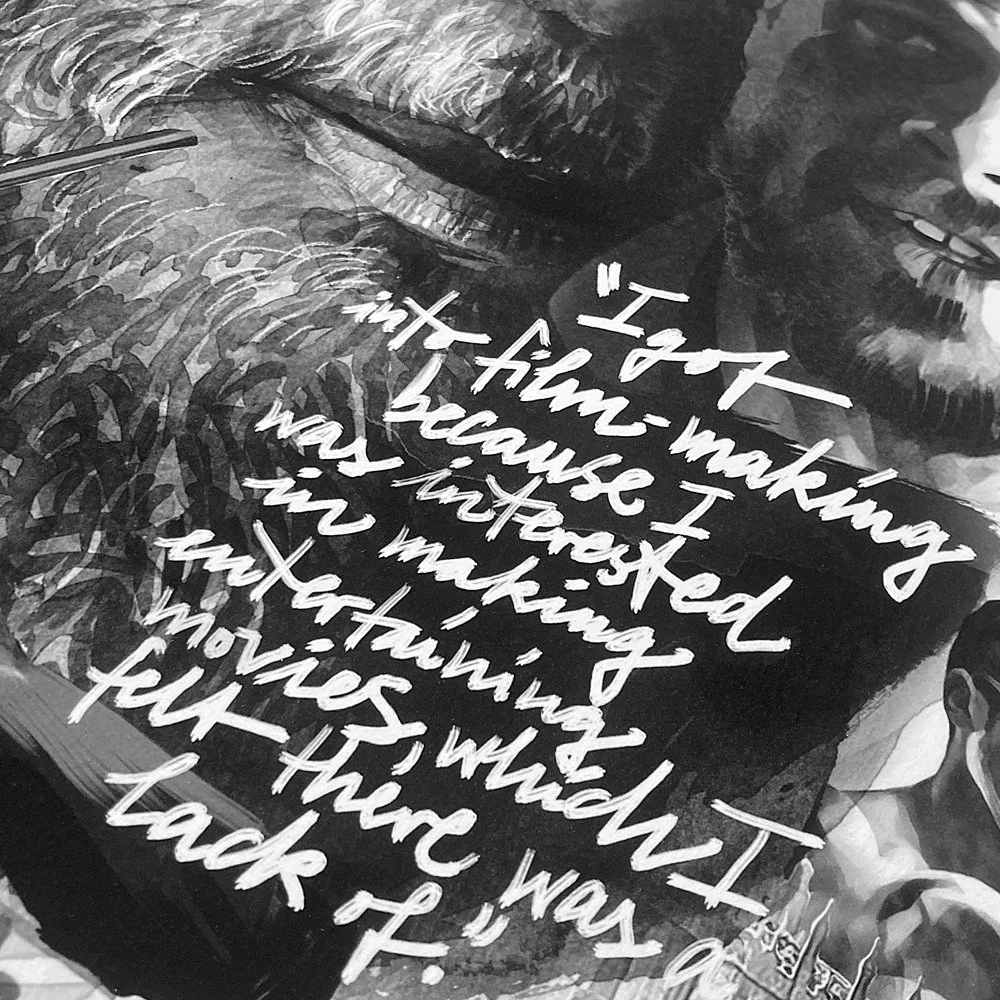 "I got
into film-making
because I
was interested
in making
entertaining
movies, which I
felt there was a
lack of."